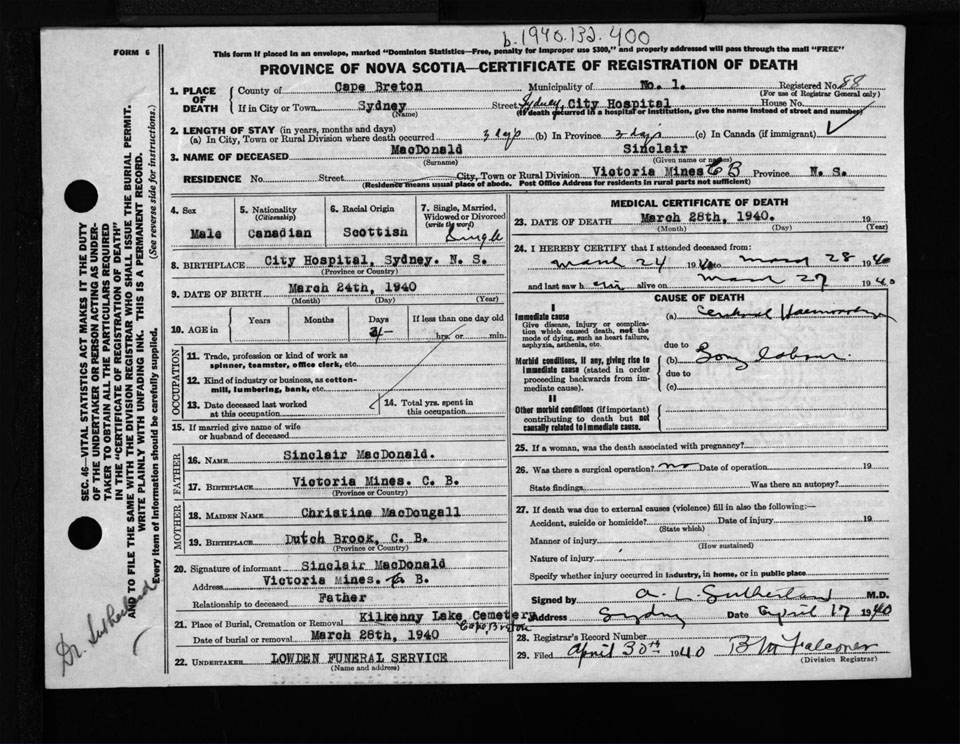 b. 1940.132.400
FORM 6
This form if placed in an envelope, marked "Dominion Statistics—Free, penalty for improper use $300," and properly addressed will pass through the mail "FREE"
PROVINCE OF NOVA SCOTIA—CERTIFICATE OF REGISTRATION OF DEATH
1. PLACE OF DEATH
County of Cape Breton Municipality of No. 1. Registered No. 88
(For use of Registrar General only)
If in City or Town Sydney Street Sydney, City Hospital House No.
(Name) (If death occurred in a hospital or institution, give the name instead of street and number)
2. LENGTH OF STAY (in years, months and days)
(a) In City, Town or Rural Division where death occurred 3 days (b) In Province 3 days (c) In Canada (if immigrant)
3. NAME OF DECEASED MacDonald Sinclair
(Surname) (Given name or names)
RESIDENCE No. Street City, Town or Rural Division Victoria Mines C B Province N. S.
(Residence means usual place of abode. Post Office Address for residents in rural parts not sufficient)
4. Sex
Male
5. Nationality
(Citizenship)
Canadian
6. Racial Origin
Scottish
7. Single, Married, Widowed or Divorced
(write the word)
Single
8. BIRTHPLACE City Hospital, Sydney. N. S.
(Province or Country)
9. DATE OF BIRTH March 24th, 1940
(Month) (Day) (Year)
10. AGE in
Years Months Days If less than one day old
hrs. or min.
OCCUPATION
11. Trade, profession or kind of work as
spinner, teamster, office clerk, etc.
12. Kind of industry or business, as cotton-
mill, lumbering, bank, etc.
13. Date deceased last worked
at this occupation
14. Total yrs. spent in
this occupation
15. If married give name of wife
or husband of deceased
FATHER
16. NAME Sinclair MacDonald.
17. BIRTHPLACE Victoria Mines. C. B.
(Province or Country)
MOTHER
18. MAIDEN NAME Christine MacDougall
19. BIRTHPLACE Dutch Brook, C. B.
(Province or Country)
20. Signature of informant Sinclair MacDonald
Address Victoria Mines. C B.
Relationship to deceased Father
21. Place of Burial, Cremation or Removal Kilkenny Lake Cemetery
Cape Breton
Date of burial or removal March 28th, 1940
22. UNDERTAKER LOWDEN FUNERAL SERVICE
(Name and address)
MEDICAL CERTIFICATE OF DEATH
23. DATE OF DEATH March 28th, 1940. 19
(Month) (Day) (Year)
24. I HEREBY CERTIFY that I attended deceased from:
March 24 1940 to March 28 1940
and last saw him alive on March 27 1940
CAUSE OF DEATH
I
Immediate cause
Give disease, injury or complica-
tion which caused death, not the
mode of dying, such as heart failure,
asphyxia, asthenia, etc.
(a) Cerebral Haemorrhage
due to
Morbid conditions, if any, giving rise to
immediate cause (stated in order
proceeding backwards from im-
mediate cause).
(b) Long labour
due to
(c)
II
Other morbid conditions (if important)
contributing to death but not
causally related to immediate cause.
25. If a woman, was the death associated with pregnancy?
26. Was there a surgical operation? no Date of operation 19
State findings Was there an autopsy?
27. If death was due to external causes (violence) fill in also the following:—
Accident, suicide or homicide? Date of injury 19
(State which)
Manner of injury
(How sustained)
Nature of injury
Specify whether injury occurred in industry, in home, or in public place
Signed by A. L. Sutherland M.D.
Address Sydney Date April 17 1940
28. Registrar's Record Number
29. Filed April 30th 1940 B M Falconer
(Division Registrar)
SEC. 46—VITAL STATISTICS ACT MAKES IT THE DUTY
OF THE UNDERTAKER OR PERSON ACTING AS UNDER-
TAKER TO OBTAIN ALL THE PARTICULARS REQUIRED
IN THE "CERTIFICATE OF REGISTRATION OF DEATH"
AND TO FILE THE SAME WITH THE DIVISION REGISTRAR WHO SHALL ISSUE THE BURIAL PERMIT.
WRITE PLAINLY WITH UNFADING INK. THIS IS A PERMANENT RECORD.
Every item of information should be carefully supplied. (See reverse side for instructions.)
Dr. Sutherland